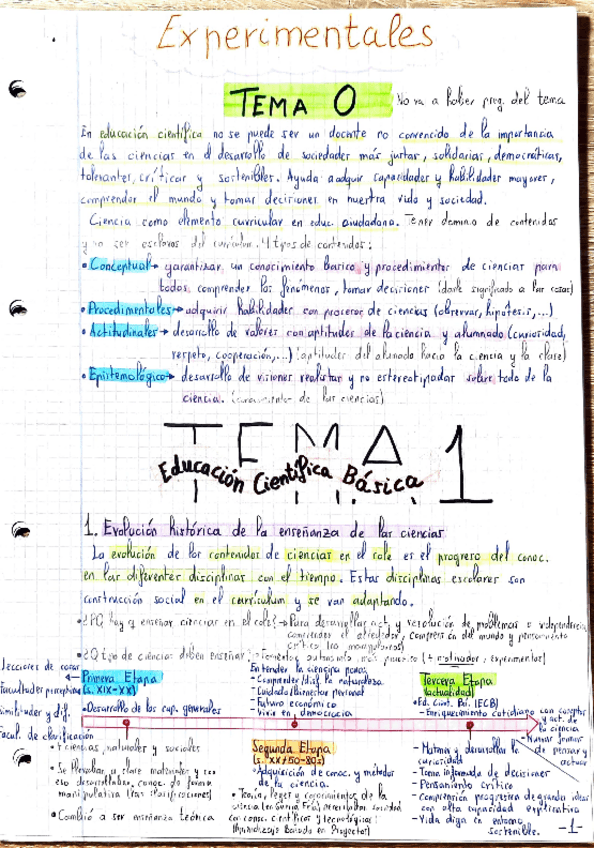 Experimentales
TEMA 0
No va a haber preg. del tema
En educación científica no se puede ser un docente no convencido de la importancia
de las ciencias en el desarrollo de sociedades más justas, solidarias, democráticas,
tolerantes, críticas y sostenibles. Ayuda a adquir capacidades y habilidades mayores,
comprender el mundo y tomar decisiones en nuestra vida y sociedad.
Ciencia como elemento curricular en educ. ciudadana. Tener dominio de contenidos
y no ser esclavos del currículum. 4 tipos de contenidos:
• Conceptual → garantizar un conocimiento básico y procedimientos de ciencias para
todos, comprender los fenómenos, tomar decisiones (darle significado a las cosas)
• Procedimentales → adquirir habilidades con procesos de ciencias (observar, hipótesis,...)
• Actitudinales → desarrollo de valores con aptitudes de la ciencia y alumnado (curiosidad,
respeto, cooperación,...) (aptitudes del alumnado hacia la ciencia y la clase)
• Epistemológico → desarrollo de visiones realistas y no estereotipadas sobre todo de la
ciencia. (de las ciencias)
TEMA 1
Educación Científica Básica
1. Evolución histórica de la enseñanza de las ciencias
La evolución de los contenidos de ciencias en el cole es el progreso del conoc.
en las diferentes disciplinas con el tiempo. Estas disciplinas escolares son
construcción social en el currículum y se van adaptando.
• ¿PQ hay q enseñar ciencias en el cole? → Para desarrollar act. y resolución de problemas e independencia
comprender el alrededor, comprensión del mundo y pensamiento
crítico (no manipularos)
• ¿Q tipo de ciencias deben enseñar? (+ motivador, experimentos)
Lecciones de cosas
Facultades perceptivas
similitudes y dif.
Facult. de clasificación
Primera Etapa
(s. XIX-XX)
• Desarrollo de las cap. generales
Entender la ciencia para:
- Comprender/disf. la naturaleza
- Cuidado/bienestar personal
- Futuro económico
- Vivir en democracia
Tercera Etapa
(actualidad)
• Ed. Cient. Bás. (ECB)
- Enriquecimiento cotidiano con conceptos
y act. de
la ciencia
- Nuevas formas
de pensar y
actuar
• + ciencias naturales y sociales
• Se llevaban a clase materiales y con
eso desarrollaban conoc. de forma
manipulativa (ras: clasificaciones)
• Cambió a ser enseñanza teórica
Segunda Etapa
(s. XX + 50-80s)
• Adquisición de conoc. y métodos
de la ciencia.
• Teoría, leyes y conocimientos de la
con conoc. científicos y tecnológicos:
(Aprendizaje Basado en Proyectos)
- Motivar y desarrollar la
curiosidad
- Toma informada de decisiones
- Pensamiento crítico
- comprensión progresiva de grandes ideas
con alta capacidad explicativa
- Vida digna en entorno
sostenible.
-1-